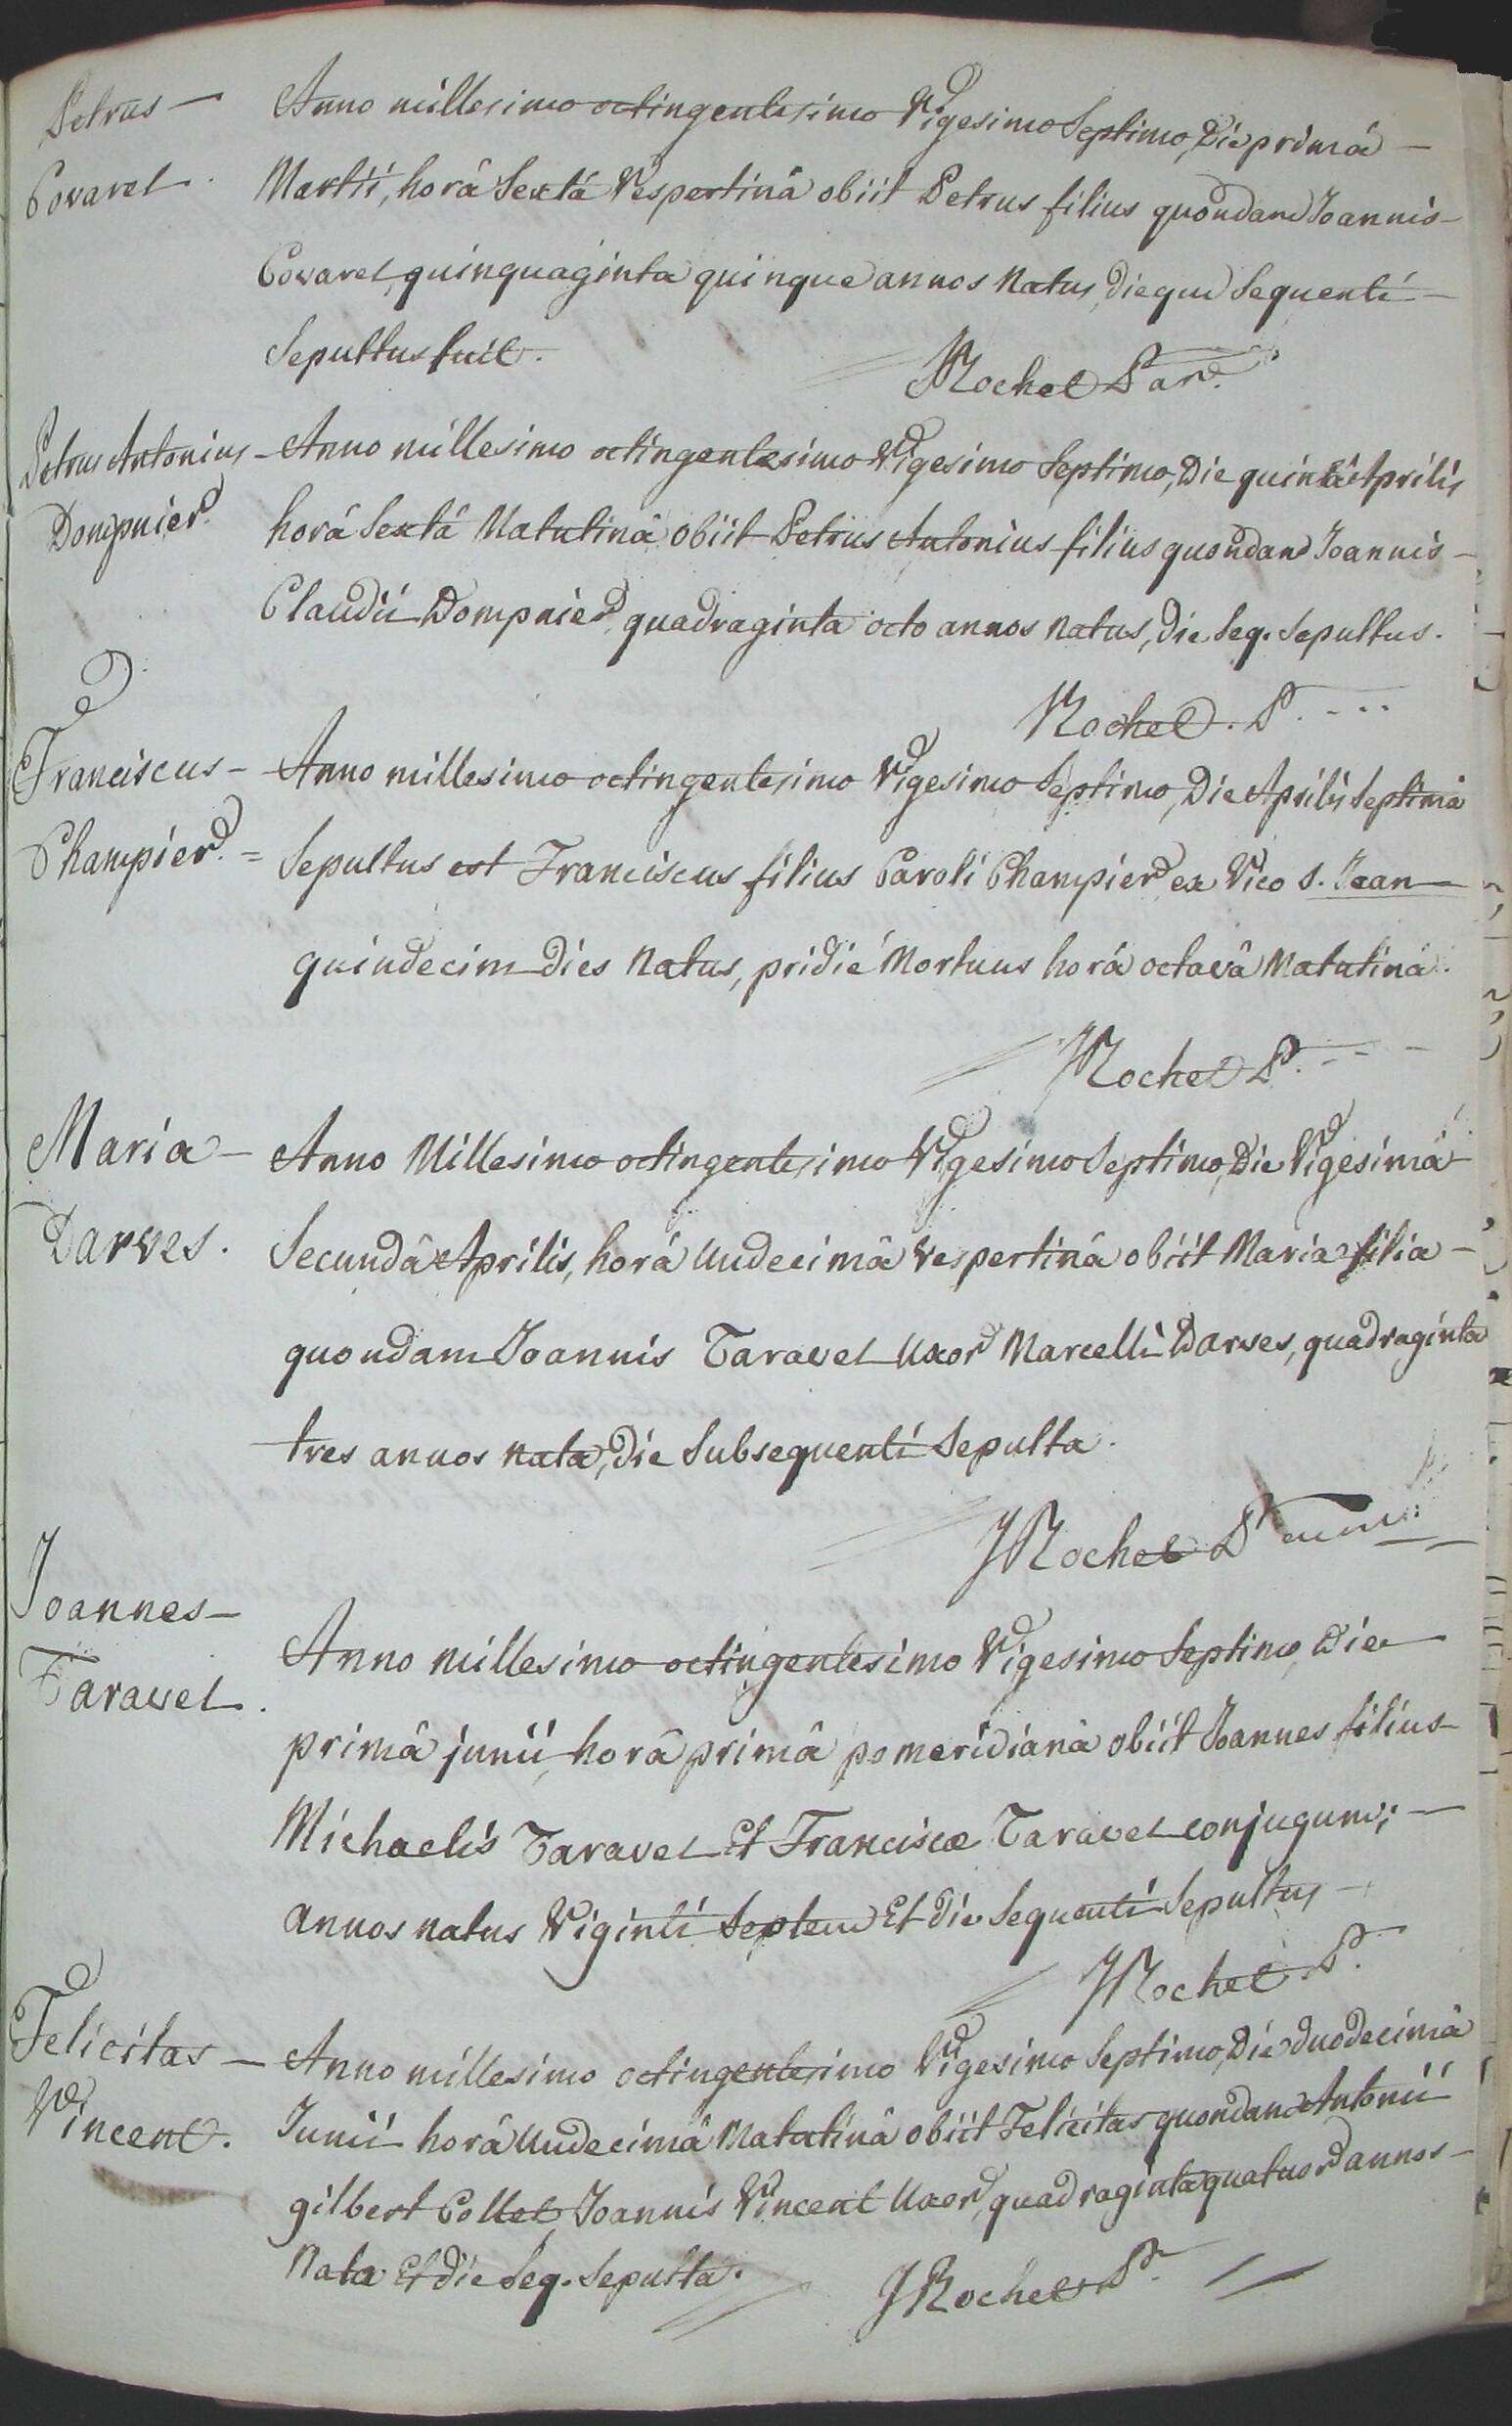 Petrus — Anno millesimo octingentesimo Vigesimo Septimo, Die primâ —
Covarel . Martii, horâ Sextâ Vespertinâ obiit Petrus filius quondam Joannis —
Covarel, quinquaginta quinque annos Natus, dieque Sequenti —
Sepultus fuit.
Rochet Par.
Petrus Antonius — Anno millesimo octingentesimo Vigesimo Septimo, Die quintâ Aprilis
Dompnier horâ Sextâ Matutinâ obiit Petrus Antonius filius quondam Joannis —
Claudii Dompnier, quadraginta octo annos Natus, die Seq. Sepultus.
Rochet. P. ....
Franciscus — Anno millesimo octingentesimo Vigesimo Septimo, Die Aprilis Septimâ
Champier. = Sepultus est Franciscus filius Caroli Champier ex Vico S. Jean —
quindecim Dies Natus, pridié Mortuus horâ octavâ Matutinâ.
JRochet P. ...
Maria — Anno Millesimo octingentesimo Vigesimo Septimo, Die Vigesimâ
Darves. Secundâ Aprilis, horâ Undecimâ Vespertinâ obiit Maria filia —
quondam Joannis Taravel Uxor Marcelli Darves, quadraginta
tres annos Nata, Die Subsequenti Sepulta.
JRochet P
Joannes —
Anno millesimo octingentesimo Vigesimo Septimo, Die
Taravel .
primâ junii, horâ primâ pomeridianâ obiit Joannes filius —
Michaelis Taravel Et Franciscæ Taravel conjugum; —
annos natus Viginti Septem Et die Sequenti Sepultus —
JRochet. P.
Felicitas — Anno millesimo octingentesimo Vigesimo Septimo, Die duodecimâ
Vincent. Junii horâ Undecimâ Matutinâ obiit Felicitas quondam Antonii
gilbert Collet, Joannis Vincent Uxor, quadraginta quatuor annos —
Nata Et die Seq. Sepulta.
JRochet P.